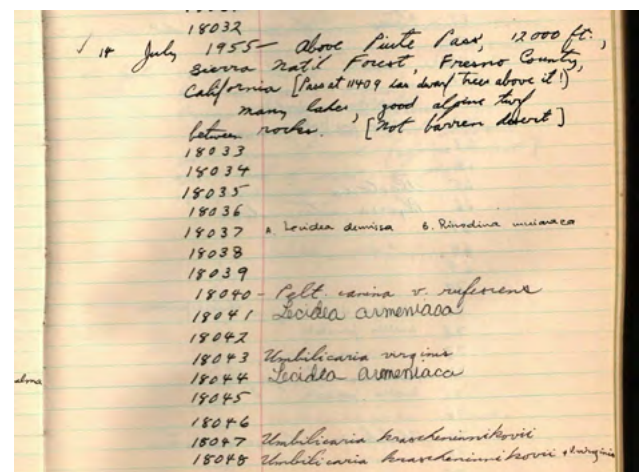 18032
✓ 18 July 1955 - Above Piute Pass, 12000 ft.,
Sierra Nat'l Forest, Fresno County,
California [Pass at 11409 has dwarf trees above it!]
many lakes, good alpine turf
between rocks. [Not barren desert]
18033
18034
18035
18036
18037 A. Lecidea demissa B. Rinodina
18038
18039
18040 - Pelt. canina v. rufescens
18041 Lecidea armeniaca
18042
18043 Umbilicaria virginis
18044 Lecidea armeniaca
18045
18046
18047 Umbilicaria krascheninnikovii
18048 Umbilicaria krascheninnikovii + U. virginis